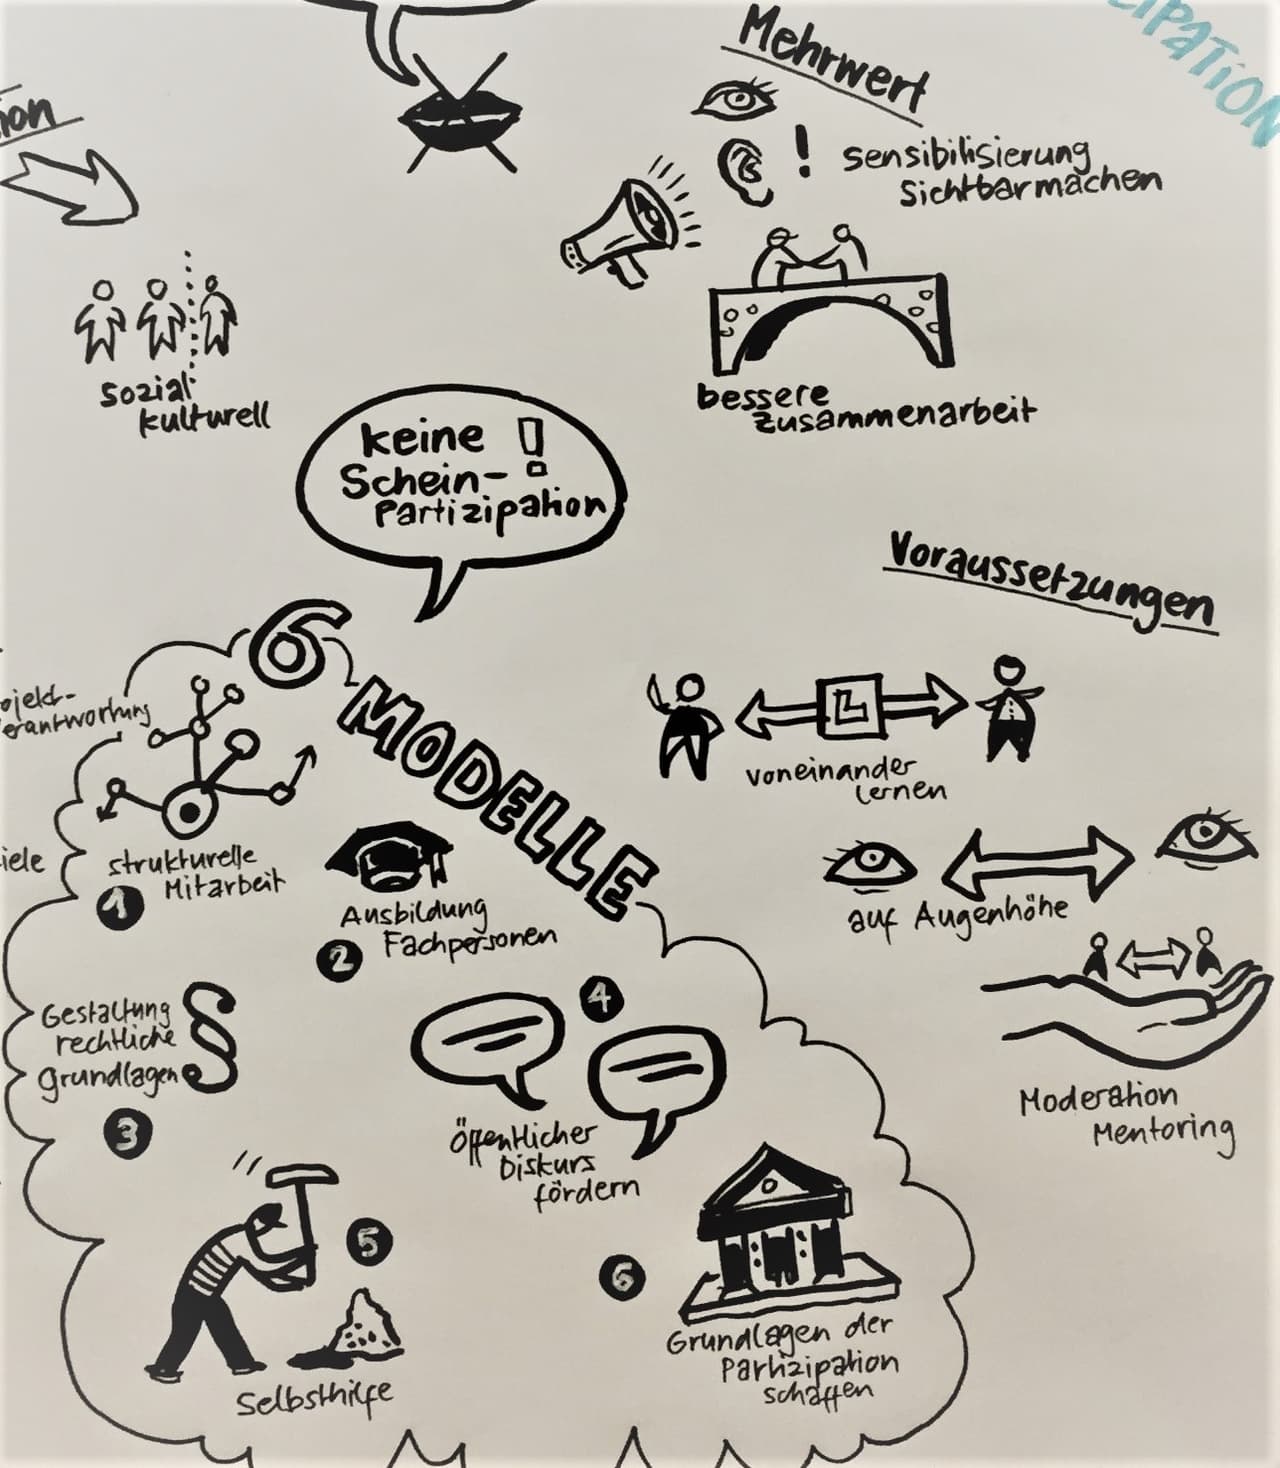 Mehrwert
! sensibilisierung
Sichtbarmachen
bessere
zusammenarbeit
sozial
kulturell
keine !
Schein-
Partizipation
Voraussetzungen
voneinander
lernen
auf Augenhöhe
Moderation
Mentoring
6 MODELLE
strukturelle
Mitarbeit
1
Ausbildung
Fachpersonen
2
Gestaltung
rechtliche
grundlagen §
3
4
öffentlicher
Diskurs
fördern
5
Selbsthilfe
6
Grundlagen der
Partizipation
schaffen